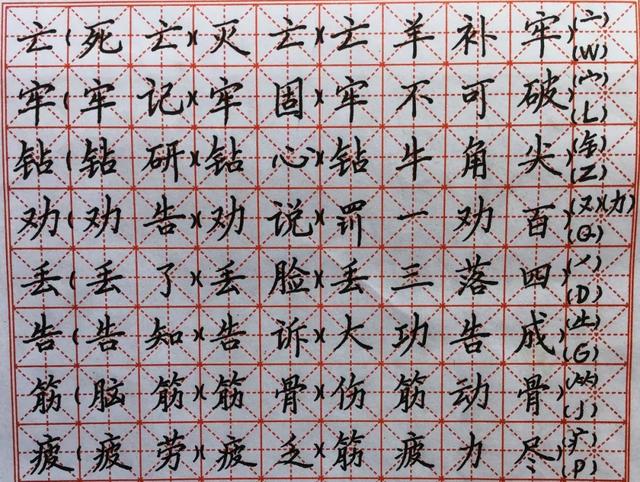 亡(死亡)(灭亡)(亡羊补牢)(亠)(W)
牢(牢记)(牢固)(牢不可破)(宀)(L)
钻(钻研)(钻心)(钻牛角尖)(钅)(Z)
劝(劝告)(劝说)(罚一劝百)(又)(力)(Q)
丢(丢了)(丢脸)(丢三落四)(丿)(D)
告(告知)(告诉)(大功告成)(G)
筋(脑筋)(筋骨)(伤筋动骨)(J)
疲(疲劳)(疲乏)(筋疲力尽)(疒)(P)